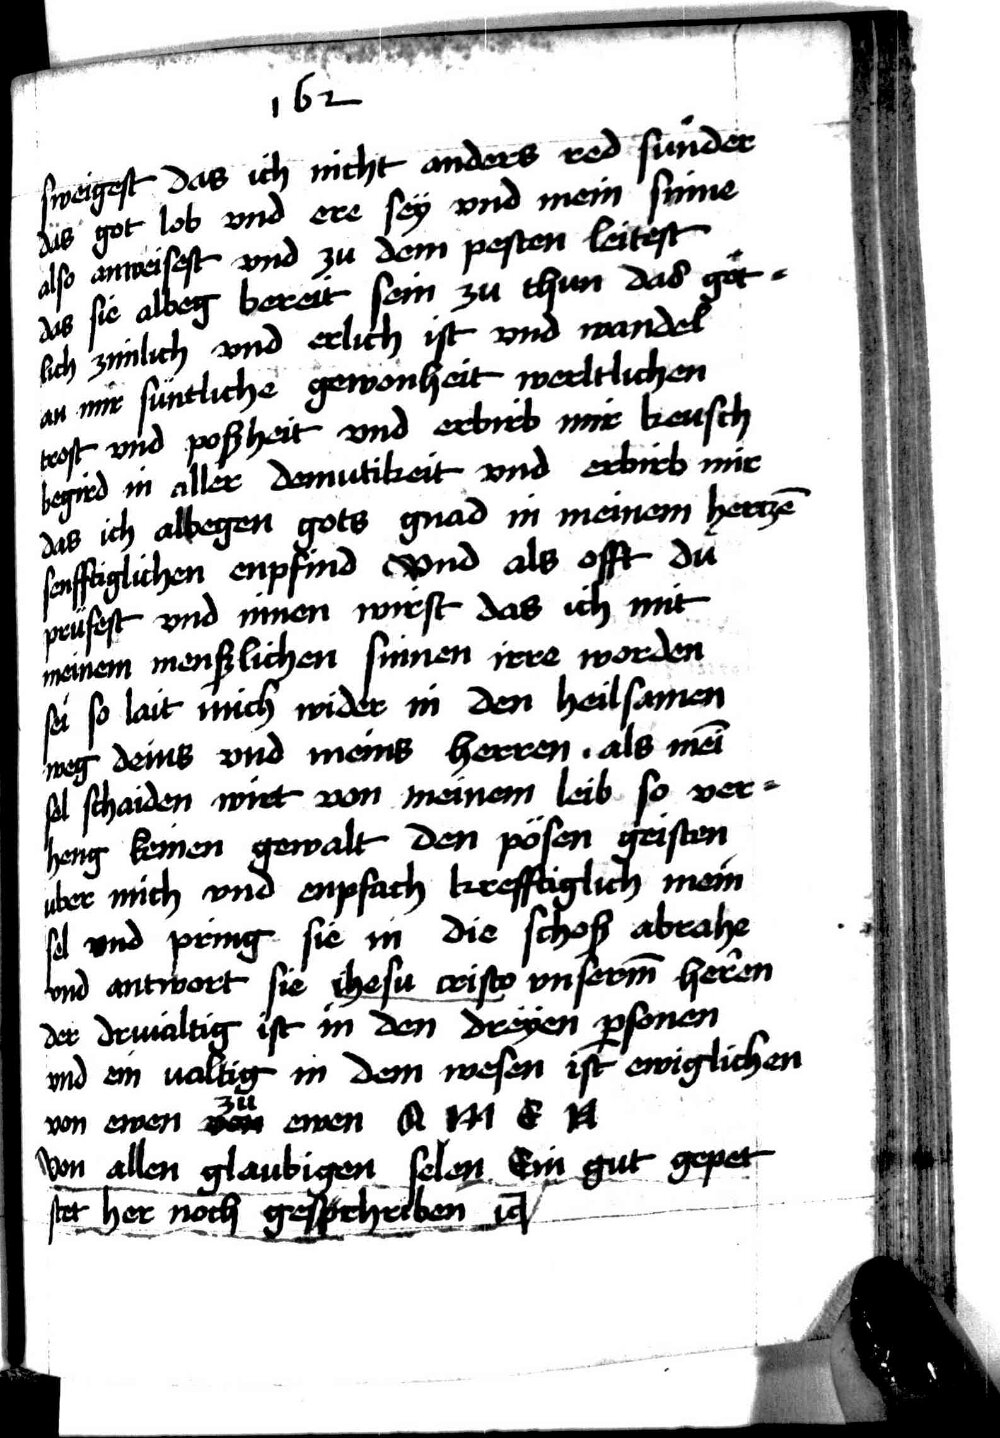 162
sweigest das ich nicht anders red sunder
das got lob vnd ere sey vnd mein sinne
also anweisest vnd zu dem pesten leitest
das sie albeg bereit sein zu thun das göt=
lich zimlich vnd erlich ist vnd wandel
an mir süntliche gewonheit werltlichen
trost vnd poßheit vnd erbirb mir keusch
begird in aller demutikeit vnd erbirb mir
das ich albegen gots gnad in meinem hertzē
senfftiglichen enpfind Vnd als offt du
prüfest vnd innen wirst das ich mit
meinem menßlichen sinnen irre worden
sei so lait mich wider in den heilsamen
weg deins vnd meins herren . als mei
sel schaiden wirt von meinem leib so ver=
heng keinen gewalt den pösen geisten
uber mich vnd enpfach krefftiglich mein
sel vnd pring sie in die schoß abrahe
vnd antwort sie ihesu cristo vnserm̄ herren
der driualtig ist in den dreyen personen
vnd ein ualtig in dem wesen ist ewiglichen
von ewen zu ewen A M E N
Von allen glaubigen selen Ein gut gepet
stet her noch geschriben